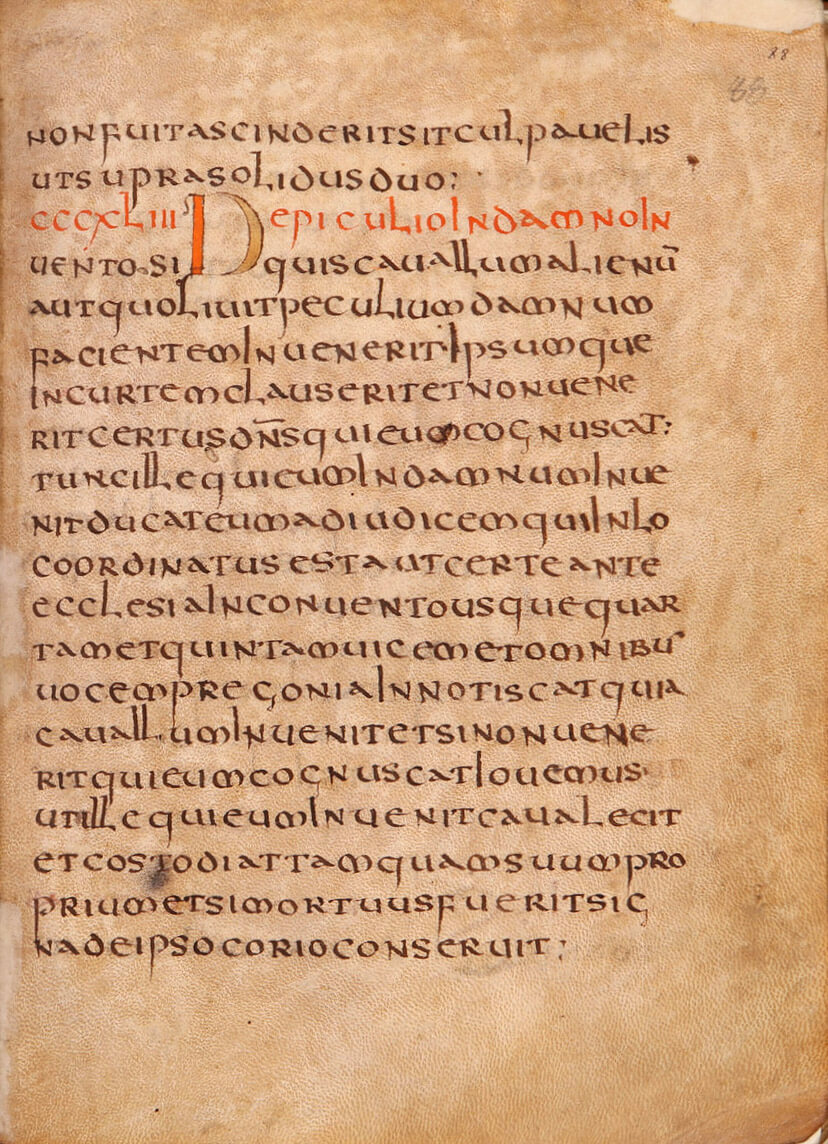 88
88
non fuit ascinderit sit culpavelis
ut supra solidus duo:
CCCXLIII De piculio in damno in
vento. Si quis cavallum alienū
aut quolivit peculium damnum
facientem invenerit. Ipsumque
in curtem clauserit et non vene
rit certus dn̄s qui eum cognuscat:
tunc ille qui eum in damnum inve
nit ducat eum ad iudicem qui in lo
co ordinatus est aut certe ante
ecclesia in convento usque quar
tam et quintam vicem et omnibus
vocem pregonia innotiscat quia
cavallum invenit et si non vene
rit qui eum cognuscat iovemus
ut ille qui eum invenit cavalecit
et costodiat tamquam suum pro
prium et si mortuus fuerit sig
na de ipso corio conseruit;